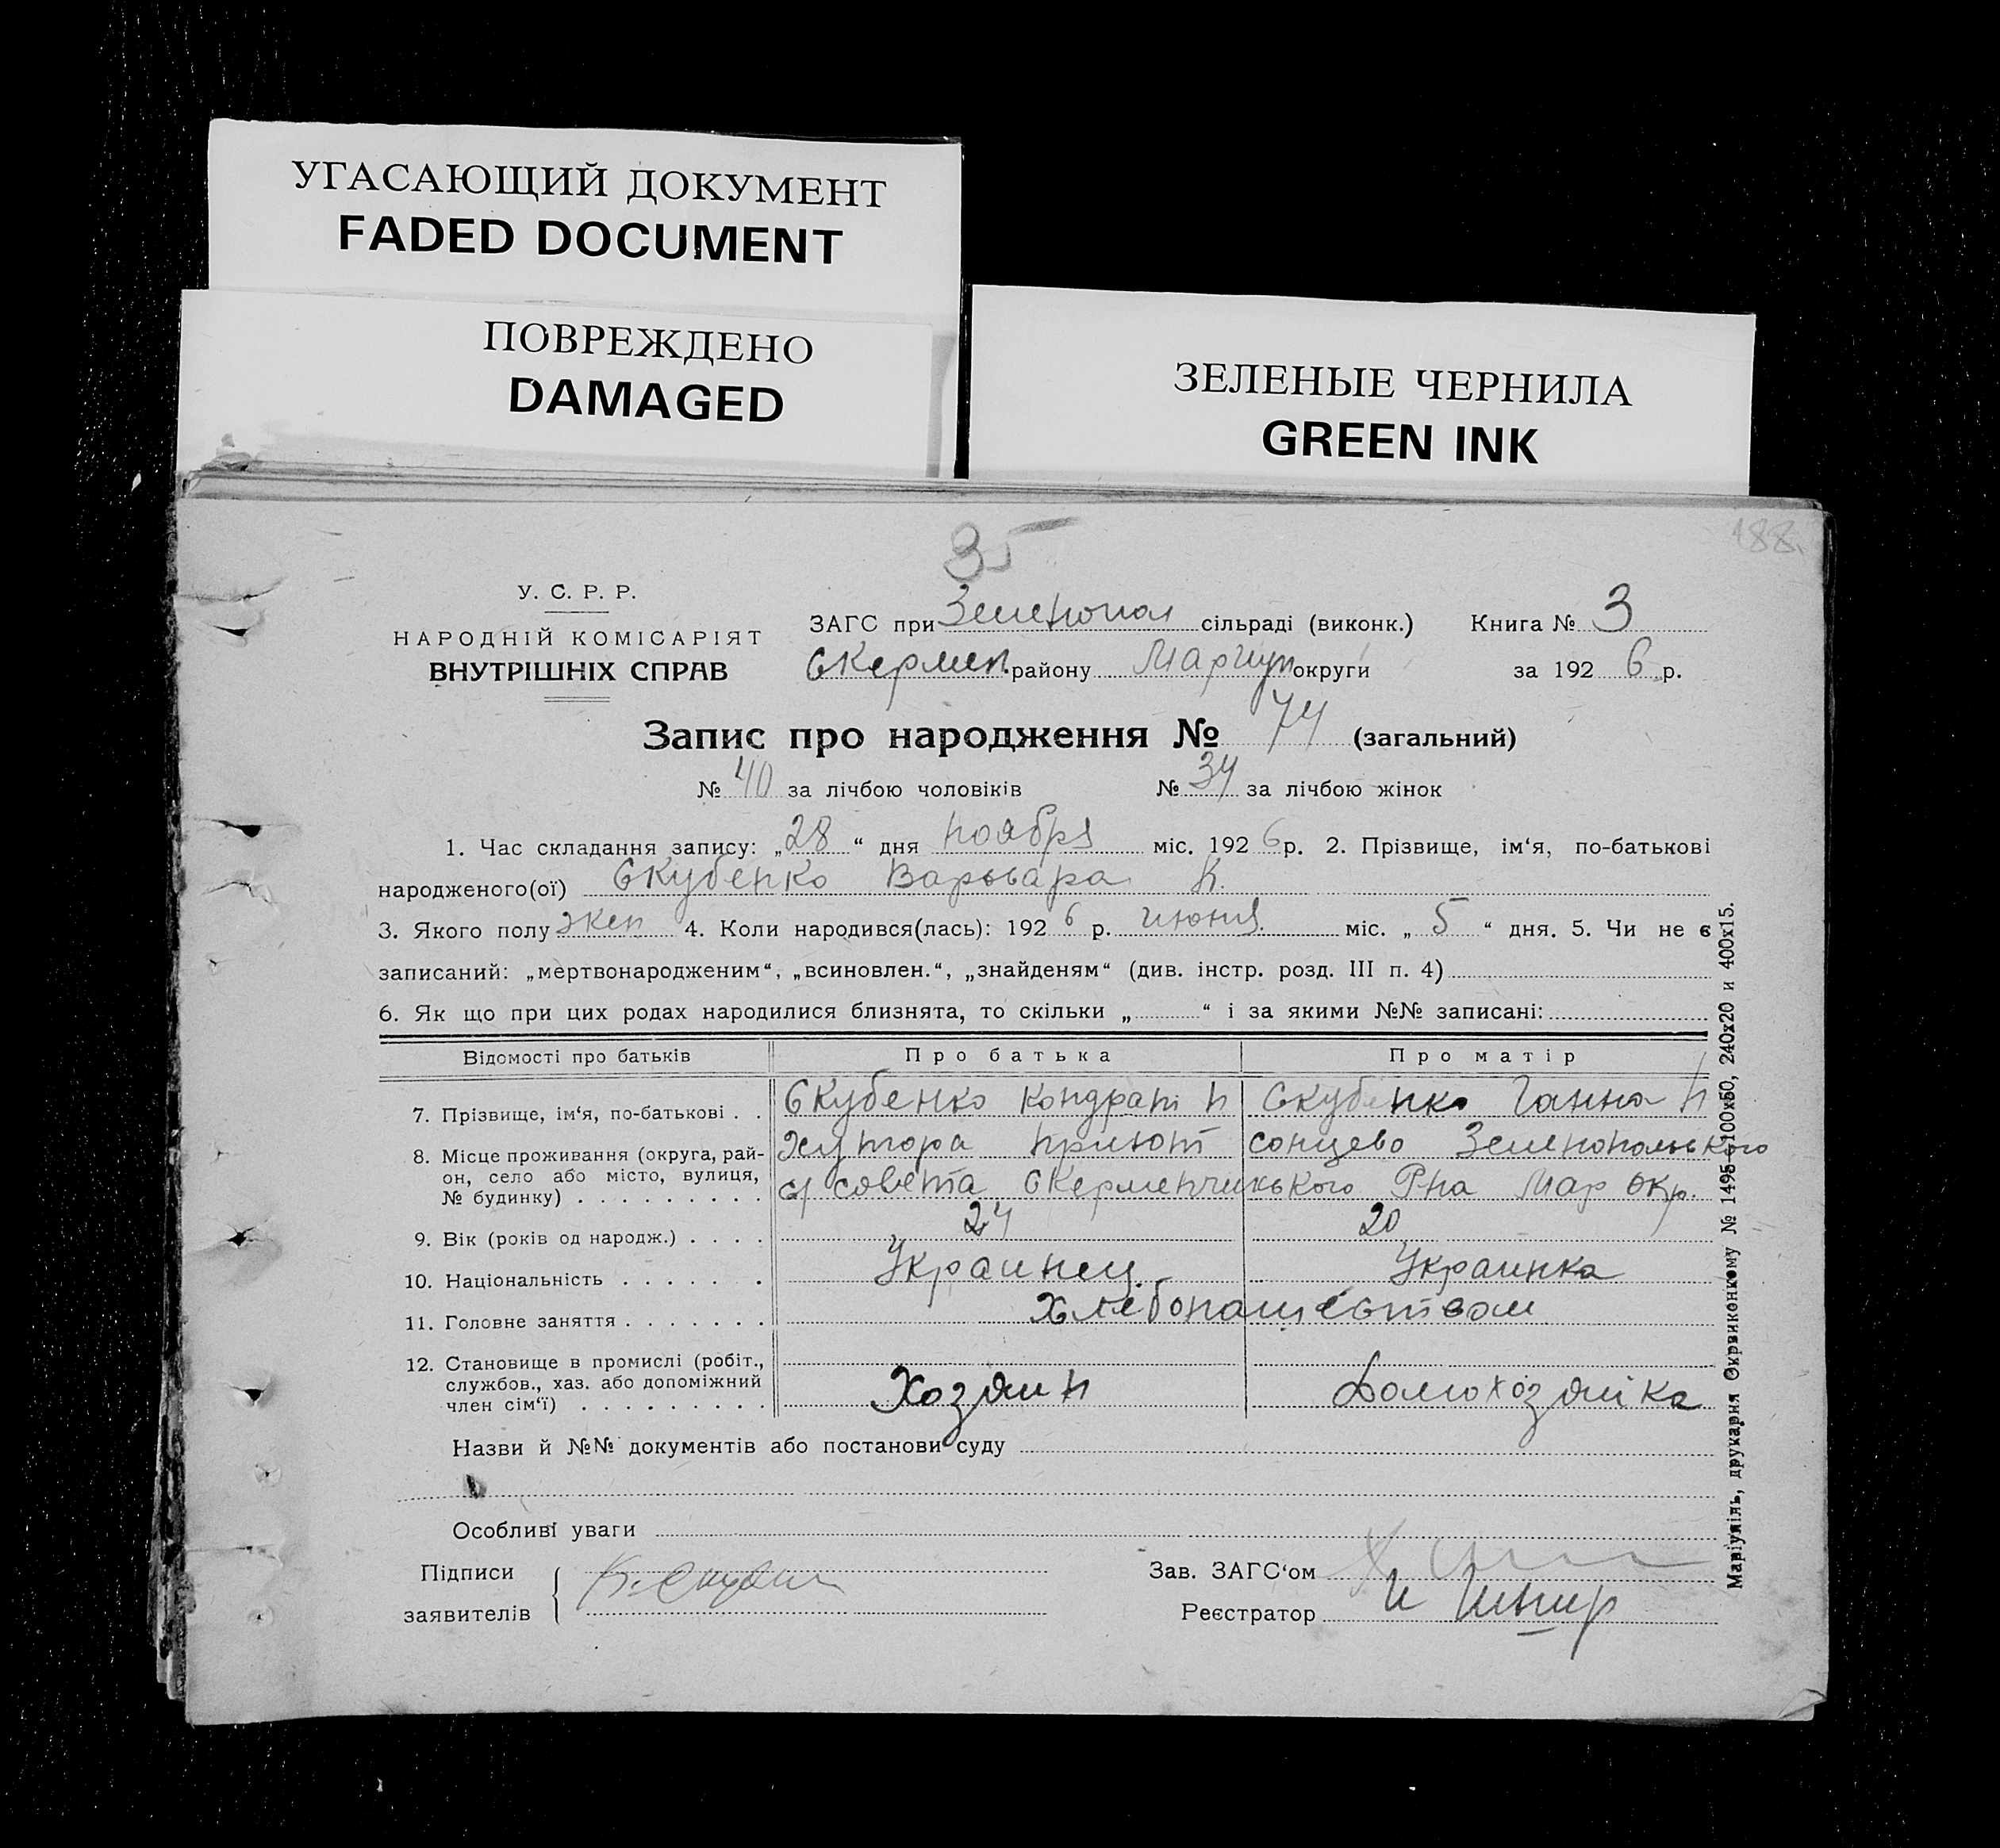 УГАСАЮЩИЙ ДОКУМЕНТ
FADED DOCUMENT
ПОВРЕЖДЕНО
DAMAGED
ЗЕЛЕНЫЕ ЧЕРНИЛА
GREEN INK
35
188.
У. С. Р. Р.
НАРОДНІЙ КОМІСАРІЯТ
ВНУТРІШНІХ СПРАВ
ЗАГС при Зеленопол сільраді (виконк.) Книга № 3
Скермен. району Мариуп округи за 192 6 р.
Запис про народження № 74 (загальний)
№ 40 за лічбою чоловіків № 34 за лічбою жінок
1. Час складання запису: „28“ дня ноября міс. 192 6 р. 2. Прізвище, ім‘я, по-батькові
народженого(ої) Скубенко Варвара К.
3. Якого полу жен 4. Коли народився(лась): 192 6 р. июня міс. „ 5 “ дня. 5. Чи не є
записаний: „мертвонародженим“, „всиновлен.“, „знайденям“ (див. інстр. розд. III п. 4)
6. Як що при цих родах народилися близнята, то скільки „ “ і за якими №№ записані:
Відомості про батьків Про батька Про матір
7. Прізвище, ім‘я, по-батькові . . Скубенко Кондрат П Скубенко Ганна П
8. Місце проживання (округа, рай- Хутора Приют сонцево Зеленопольского
он, село або місто, вулиця, с/совета Скерменчикького Рна Мар окр.
№ будинку) . . . . . . . . .
9. Вік (років од народж.) . . . . 24 20
10. Національність . . . . . . Украинец Украинка
11. Головне заняття . . . . . . . Хлебопашеством
12. Становище в промислі (робіт.,
службов., хаз. або допоміжний Хозяин Домохозяйка
член сім‘ї) . . . . . . . . .
Назви й №№ документів або постанови суду
Особливі уваги
Підписи
заявителів
Зав. ЗАГС‘ом
Реєстратор И
Маріупіль, друкарня Окрвиконкому № 1495—100х50, 240х20 и 400х15.